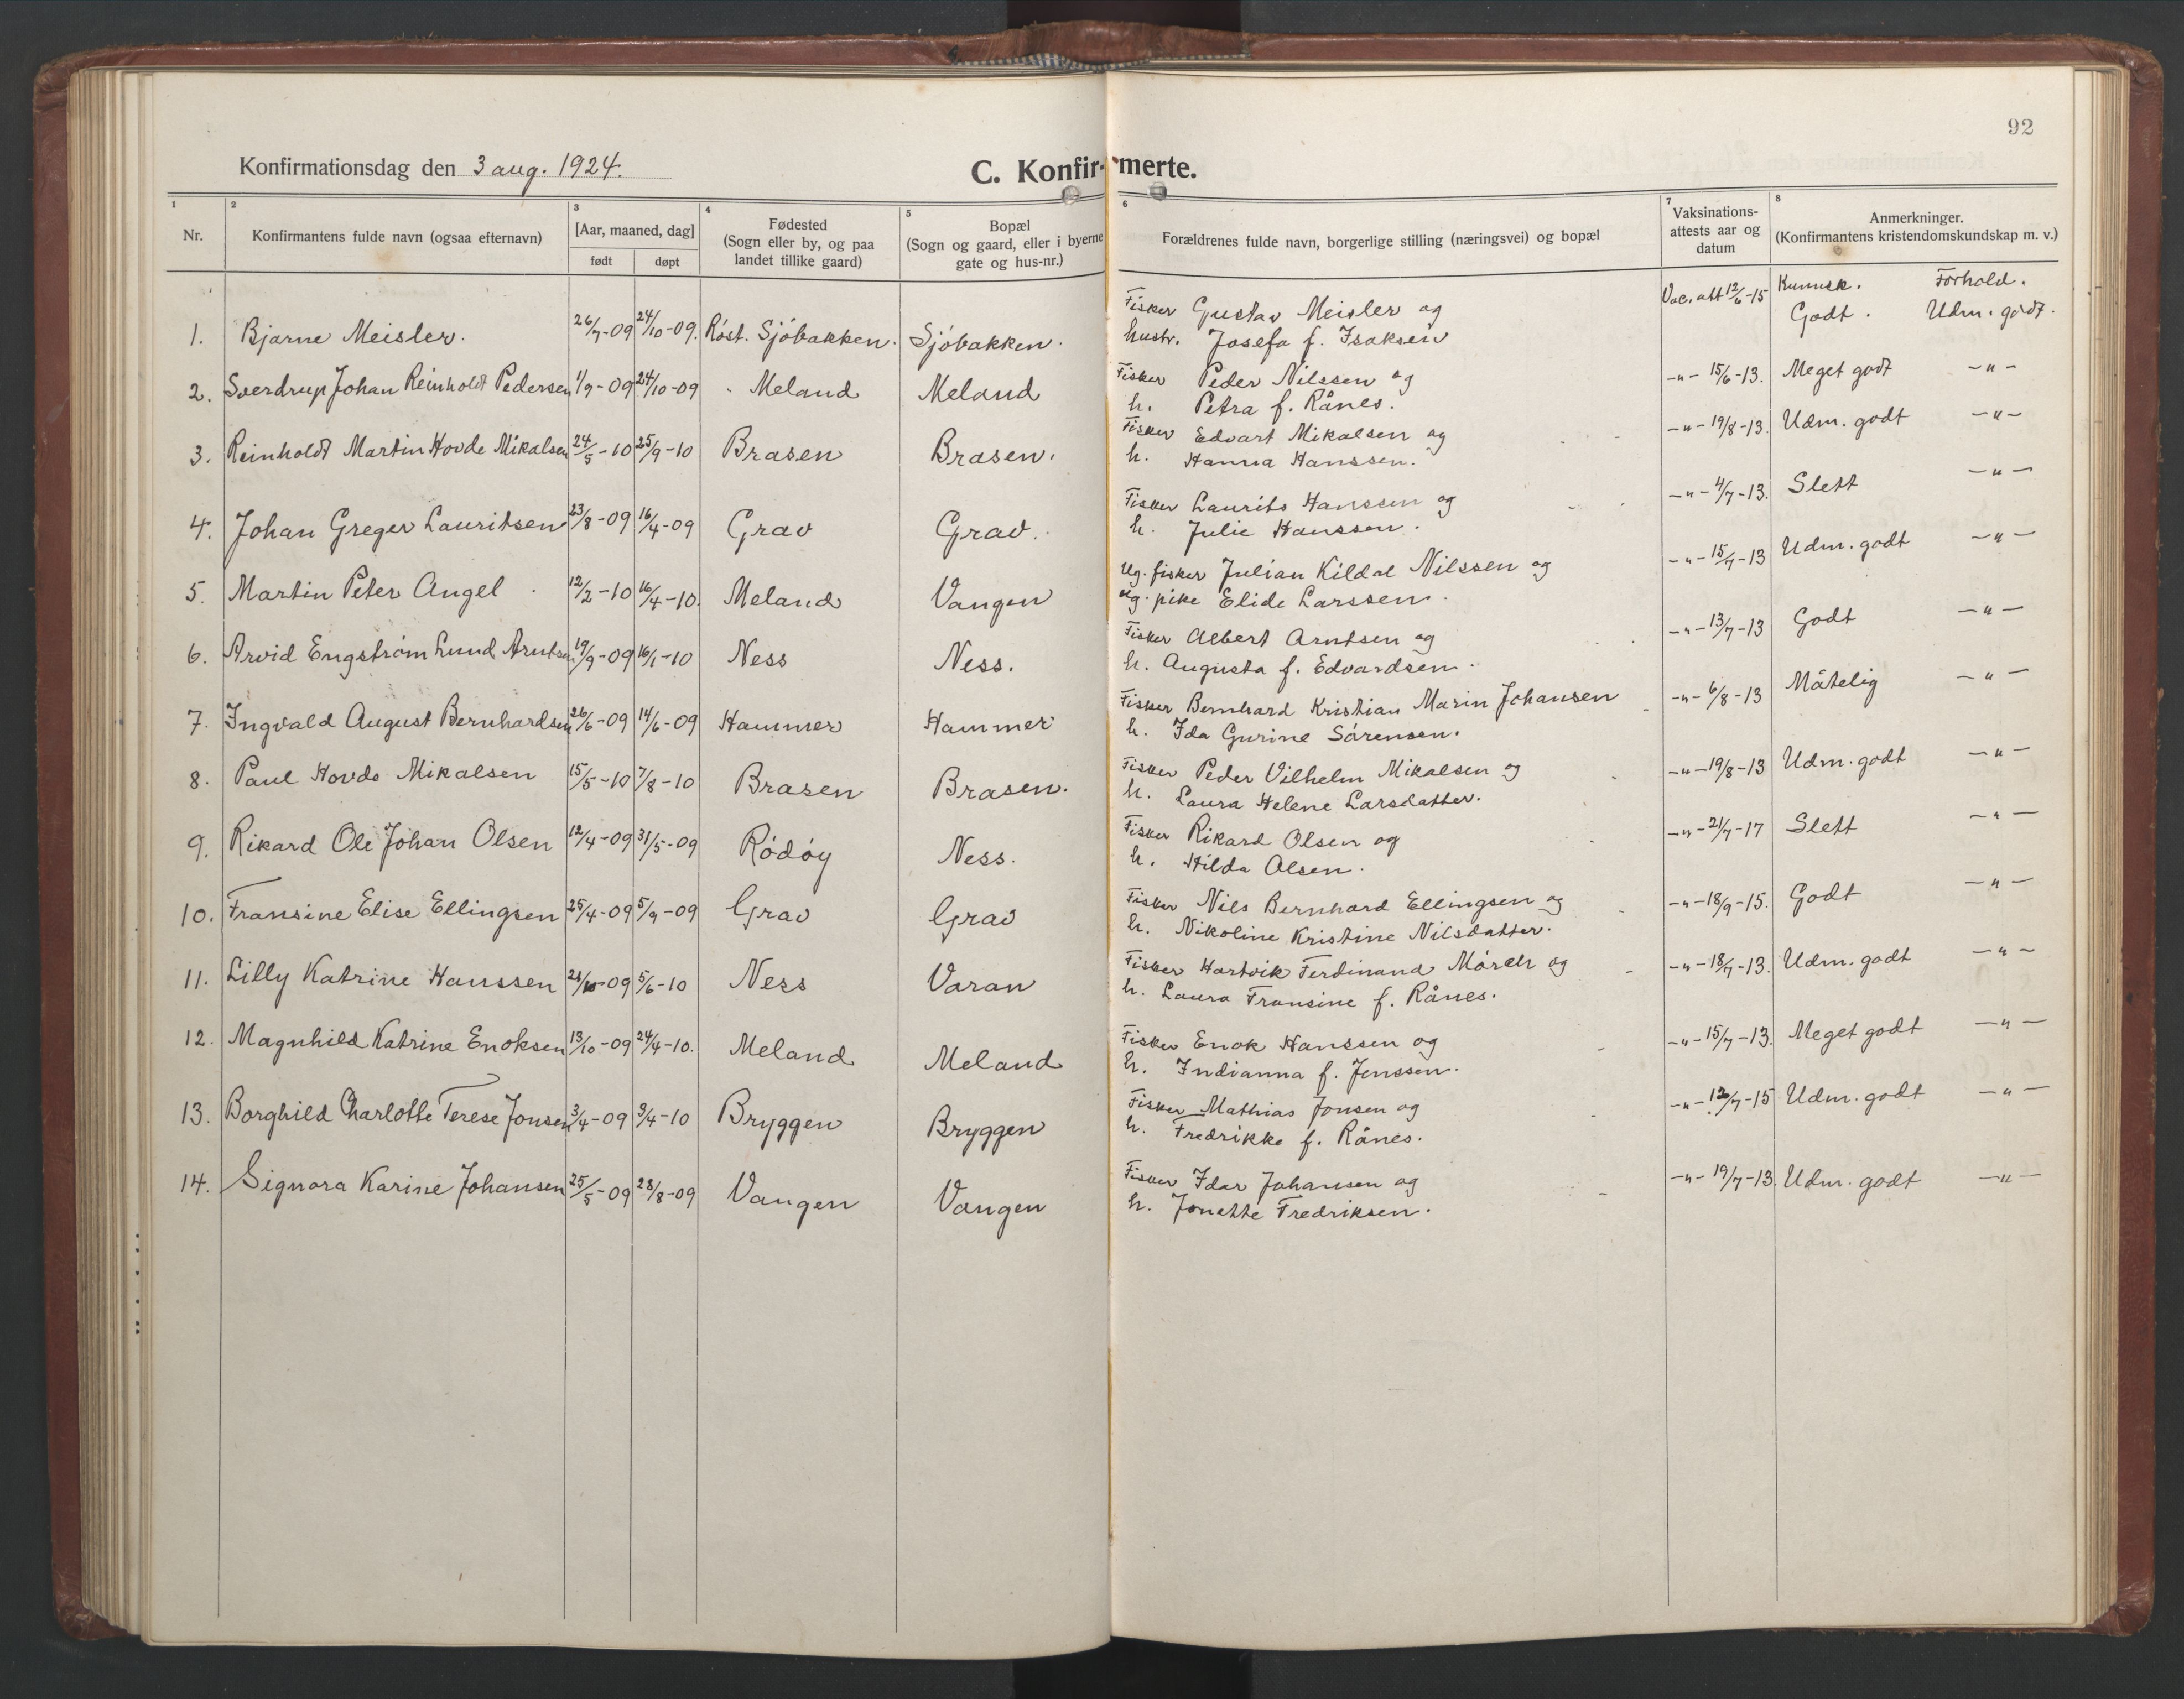 92
Konfirmationsdag den 3 aug. 1924.
C. Konfirmerte.
1 2 3 4 5 6 7 8
Nr. Konfirmantens fulde navn (ogsaa efternavn) [Aar, maaned, dag] født døpt Fødested (Sogn eller by, og paa landet tillike gaard) Bopæl (Sogn og gaard, eller i byerne gate og hus-nr.) Forældrenes fulde navn, borgerlige stilling (næringsvei) og bopæl Vaksinations-attests aar og datum Anmerkninger. (Konfirmantens kristendomskundskap m. v.)
Kunnsk. Forhold.
1. Bjarne Meisler. 26/7-09 24/10-09. Röst. Sjöbakken. Sjöbakken. Fisker Gustav Meisler og Vac. att 12/6-15 Godt. Udm. godt.
hustr. Josefa f. Isaksen
2. Sverdrup Johan Reinholdt Pedersen 1/9-09 24/10-09 Meland Meland Fisker Peder Nilssen og -"- 15/6-13. Meget godt -"-
h. Petra f. Rånes.
3. Reinholdt Martin Hovde Mikalsen 24/5-10 25/9-10 Brasen Brasen. Fisker Edvart Mikalsen og -"- 19/8-13. Udm. godt -"-
h. Hanna Hanssen.
4. Johan Greger Lauritsen 23/8-09 16/4-09 Grav Grav. Fisker Laurits Hanssen og -"- 4/7-13. Slett -"-
h. Julie Hanssen.
5. Martin Peter Angel 12/2-10 16/4-10. Meland Vangen Ug. fisker Julian Kildal Nilssen og -"- 15/7-13 Udm. godt -"-
ug. pike Elide Larssen.
6. Arvid Engström Lund Arntsen 19/9-09 16/1-10 Ness Ness. Fisker Albert Arntsen og -"- 13/7-13 Godt -"-
h. Augusta f. Edvardsen.
7. Ingvald August Bernhardsen 26/6-09 14/6-09 Hammer Hammer Fisker Bernhard Kristian Marin Johansen -"- 6/8-13 Måtelig -"-
h. Ida Gurine Sörensen.
8. Paul Hovde Mikalsen 15/5-10 7/8-10 Brasen Brasen. Fisker Peder Vilhelm Mikalsen og -"- 19/8-13 Udm. godt -"-
h. Laura Helene Larsdatter.
9. Rikard Ole Johan Olsen 12/4-09 31/5-09 Rödöy Ness. Fisker Rikard Olsen og -"- 21/7-17 Slett -"-
h. Hilda Olsen.
10. Fransine Elise Ellingsen 25/4-09 5/9-09 Grav Grav Fisker Nils Bernhard Ellingsen og -"- 18/9-15. Godt -"-
h. Nikoline Kristine Nilsdatter.
11. Lilly Katrine Hanssen /10-09 5/6-10 Ness Varan Fisker Hartvik Ferdinand Mörch og -"- 18/7-13. Udm. godt -"-
h. Laura Fransine f. Rånes.
12. Magnhild Katrine Enoksen 13/10-09 24/4-10. Meland Meland Fisker Enok Hanssen og -"- 15/7-13. Meget godt -"-
h. Indianna f. Jenssen.
13. Borghild Charlotte Terese Jonsen 3/4-09 3/4-10 Bryggen Bryggen Fisker Mathias Jonsen og -"- /7-15 Udm. godt -"-
h. Fredrikke f. Rånes.
14. Signora Karine Johansen 25/5-09 28/8-09 Vangen Vangen Fisker Idar Johansen og -"- 19/7-13. Udm. godt -"-
h. Jonette Fredriksen.